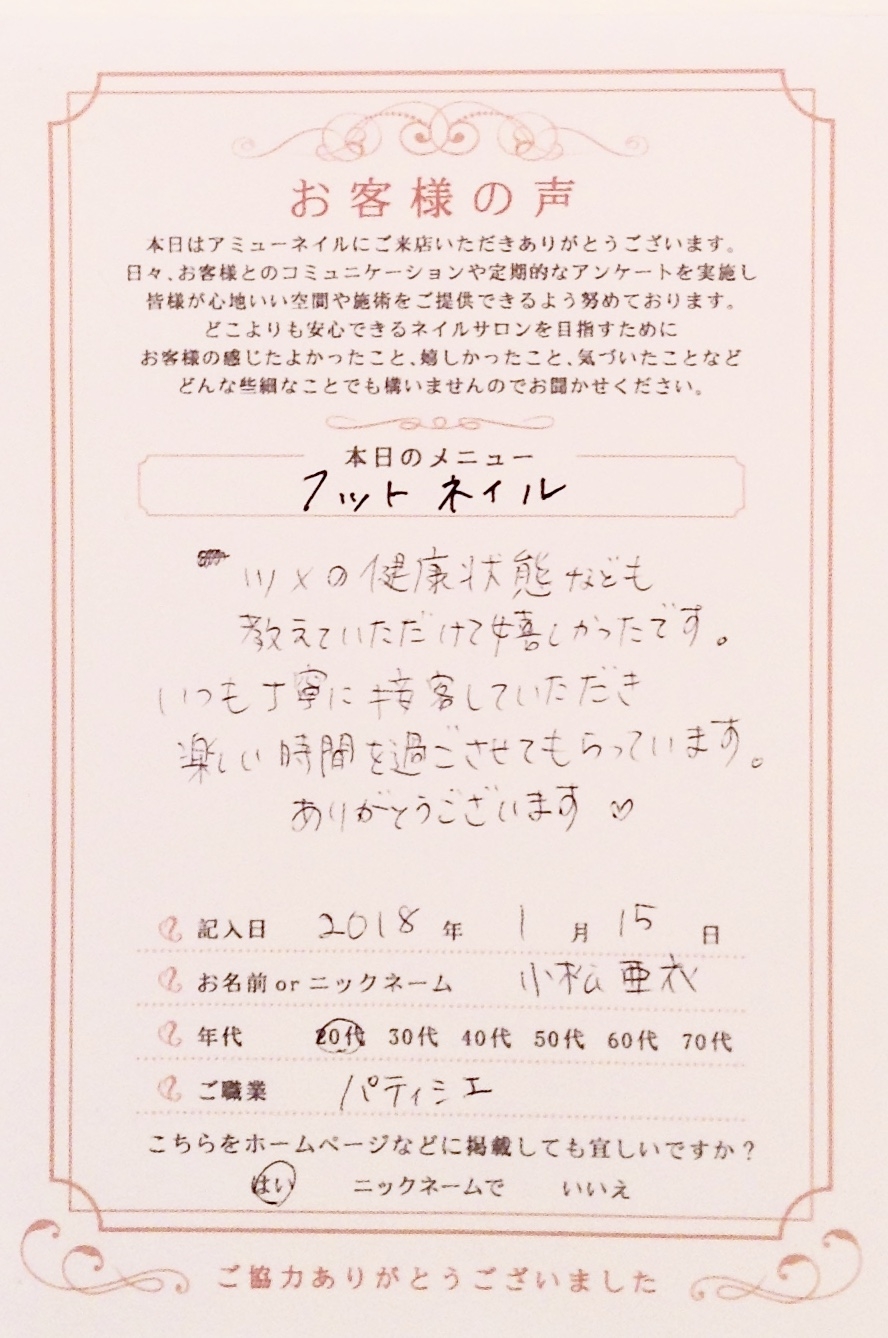 お客様の声
本日はアミューネイルにご来店いただきありがとうございます。
日々、お客様とのコミュニケーションや定期的なアンケートを実施し
皆様が心地いい空間や施術をご提供できるよう努めております。
どこよりも安心できるネイルサロンを目指すために
お客様の感じたよかったこと、嬉しかったこと、気づいたことなど
どんな些細なことでも構いませんのでお聞かせください。
本日のメニュー
フットネイル
ツメの健康状態なども
教えていただけて嬉しかったです。
いつも丁寧に接客していただき
楽しい時間を過ごさせてもらっています。
ありがとうございます♡
記入日 2018 年 1 月 15 日
お名前 or ニックネーム 小松亜衣
年代 20代 30代 40代 50代 60代 70代
ご職業 パティシエ
こちらをホームページなどに掲載しても宜しいですか？
はい ニックネームで いいえ
ご協力ありがとうございました